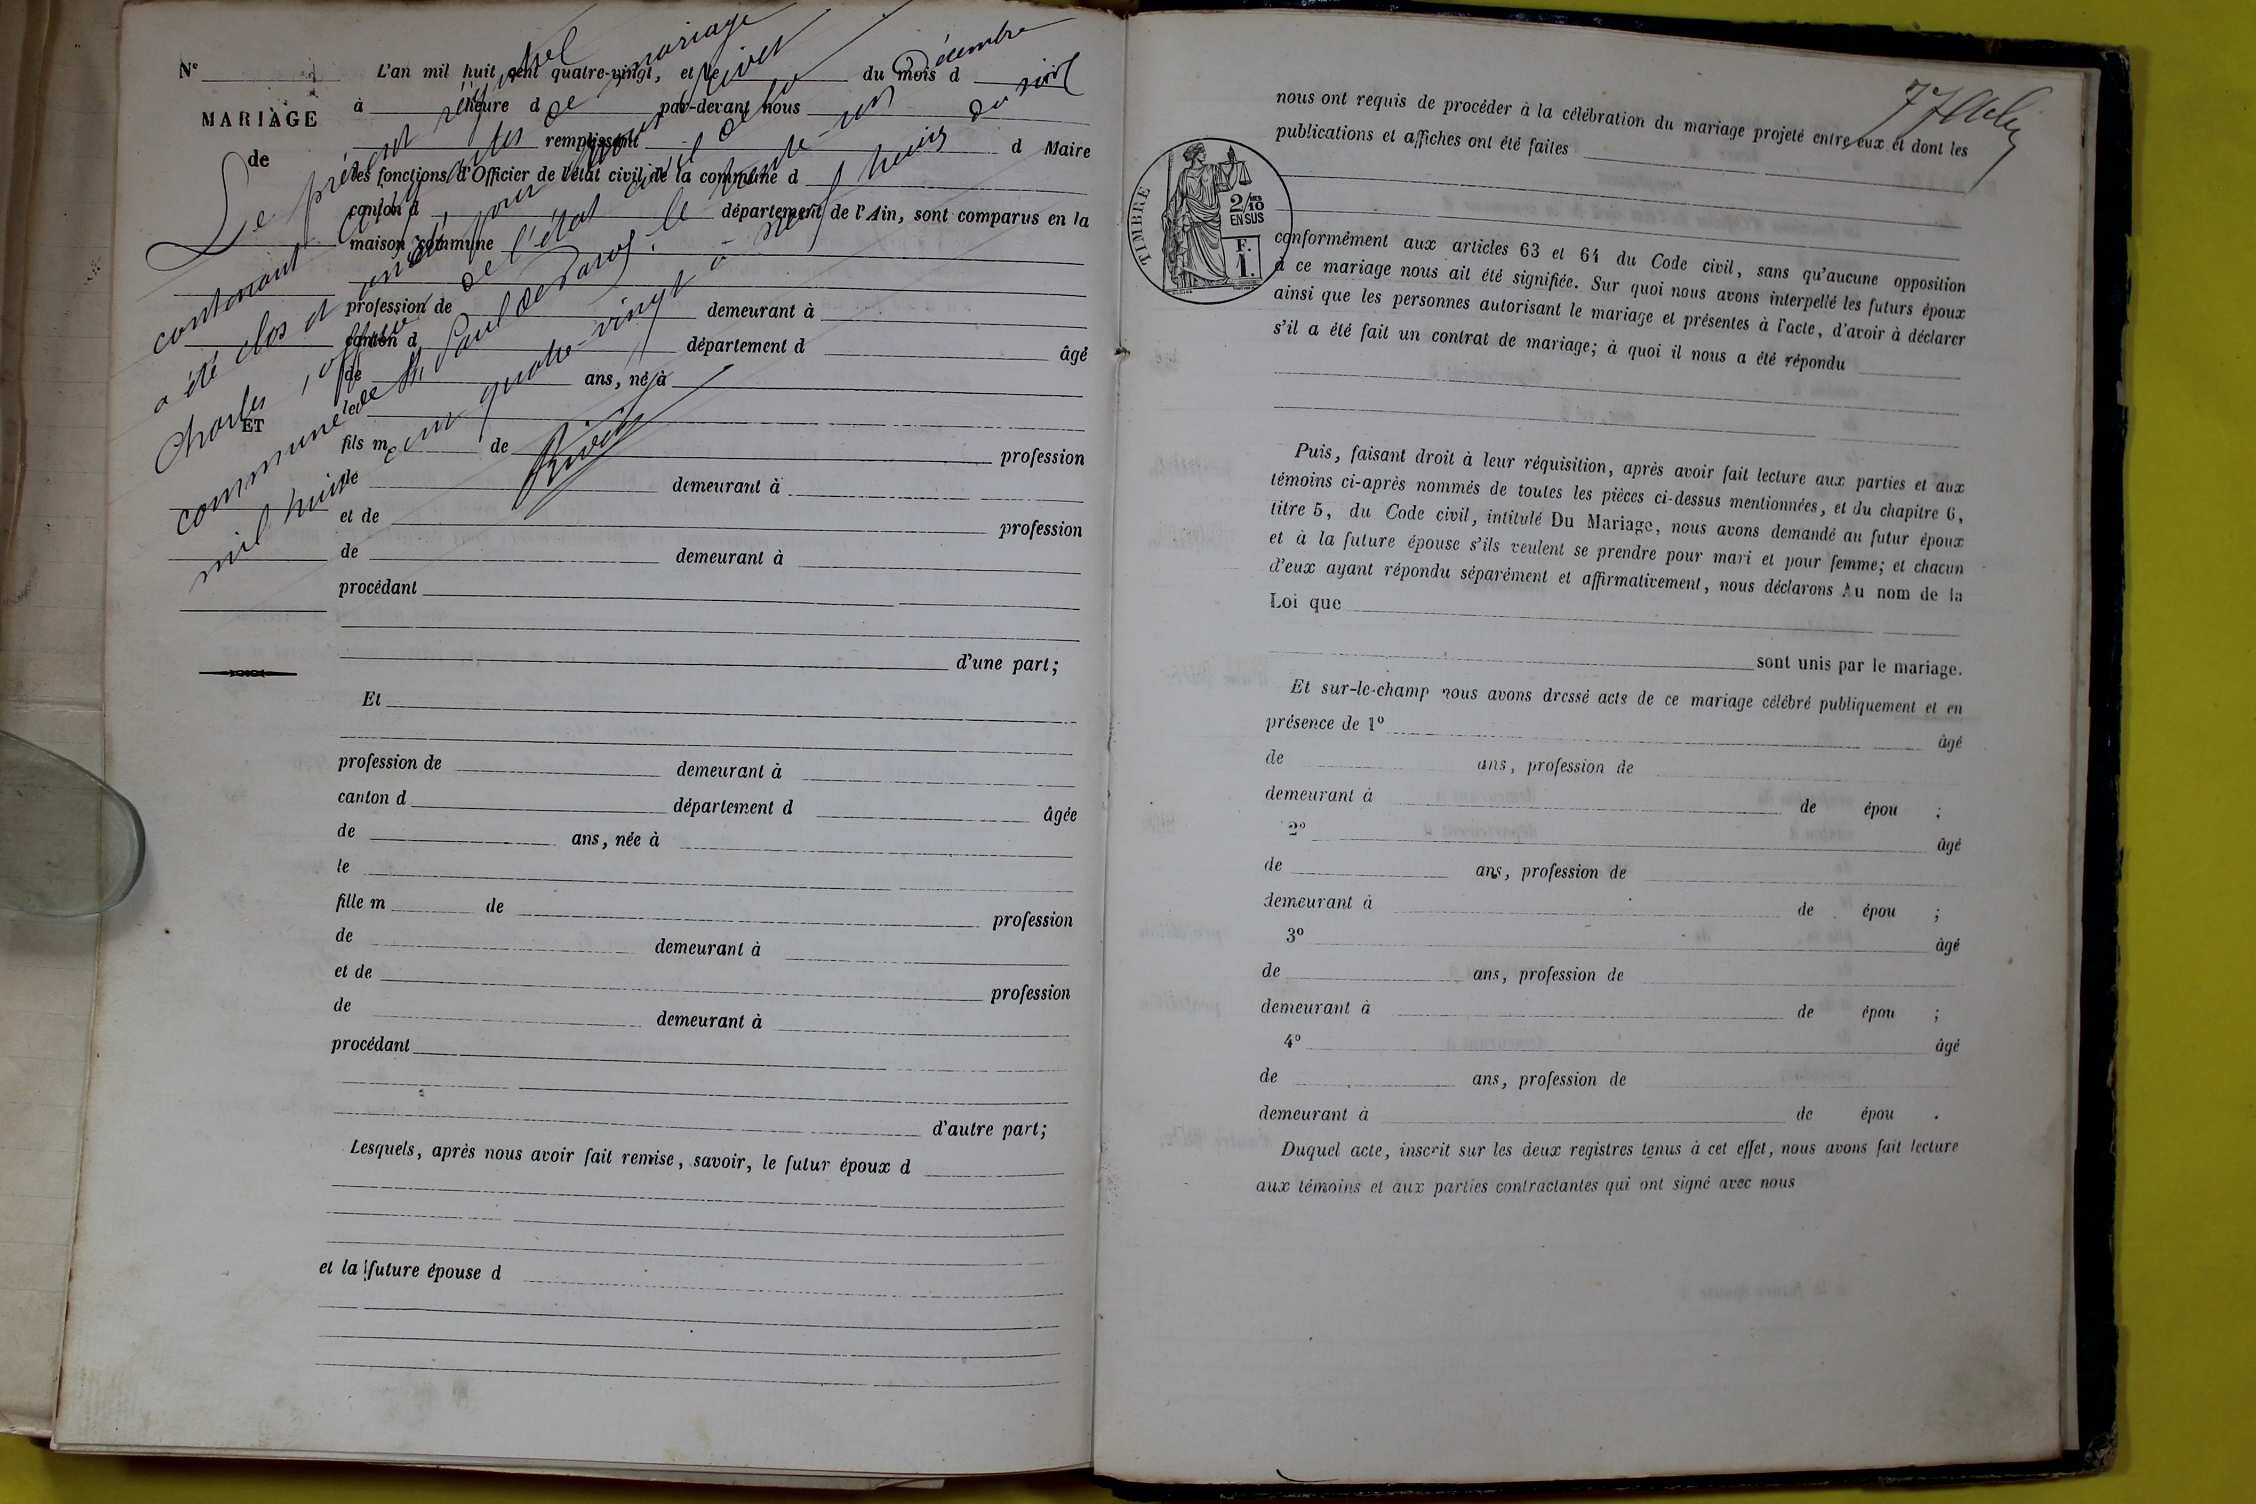 N°
MARIAGE
de
ET
L'an mil huit cent quatre-vingt, et le du mois d
à heure d par-devant nous
remplissant d Maire
les fonctions d'Officier de l'état civil de la commune d
canton d département de l'Ain, sont comparus en la
maison commune
profession de demeurant à
canton d département d âgé
de ans, né à
le
fils m de profession
de demeurant à
et de profession
de demeurant à
procédant
d'une part;
Et
profession de demeurant à
canton d département d âgée
de ans, née à
le
fille m de profession
de demeurant à
et de profession
de demeurant à
procédant
d'autre part;
Lesquels, après nous avoir fait remise, savoir, le futur époux d
et la future épouse d
Le présent registre
contenant actes de mariage
a été clos et arrêté par nous Rivet
Charles, officier de l'état civil de la
commune de St Paul de Varax, le trente-un Décembre
mil huit cent quatre-vingt à neuf heures du soir
Rivet
nous ont requis de procéder à la célébration du mariage projeté entre eux et dont les
publications et affiches ont été faites
TIMBRE
2/10 EN SUS
F. 1.
conformément aux articles 63 et 64 du Code civil, sans qu'aucune opposition
à ce mariage nous ait été signifiée. Sur quoi nous avons interpellé les futurs époux
ainsi que les personnes autorisant le mariage et présentes à l'acte, d'avoir à déclarer
s'il a été fait un contrat de mariage; à quoi il nous a été répondu
Puis, faisant droit à leur réquisition, après avoir fait lecture aux parties et aux
témoins ci-après nommés de toutes les pièces ci-dessus mentionnées, et du chapitre 6,
titre 5, du Code civil, intitulé Du Mariage, nous avons demandé au futur époux
et à la future épouse s'ils veulent se prendre pour mari et pour femme; et chacun
d'eux ayant répondu séparément et affirmativement, nous déclarons Au nom de la
Loi que
sont unis par le mariage.
Et sur-le-champ nous avons dressé acte de ce mariage célébré publiquement et en
présence de 1° âgé
de ans, profession de
demeurant à de épou ;
2° âgé
de ans, profession de
demeurant à de épou ;
3° âgé
de ans, profession de
demeurant à de épou ;
4° âgé
de ans, profession de
demeurant à de épou .
Duquel acte, inscrit sur les deux registres tenus à cet effet, nous avons fait lecture
aux témoins et aux parties contractantes qui ont signé avec nous